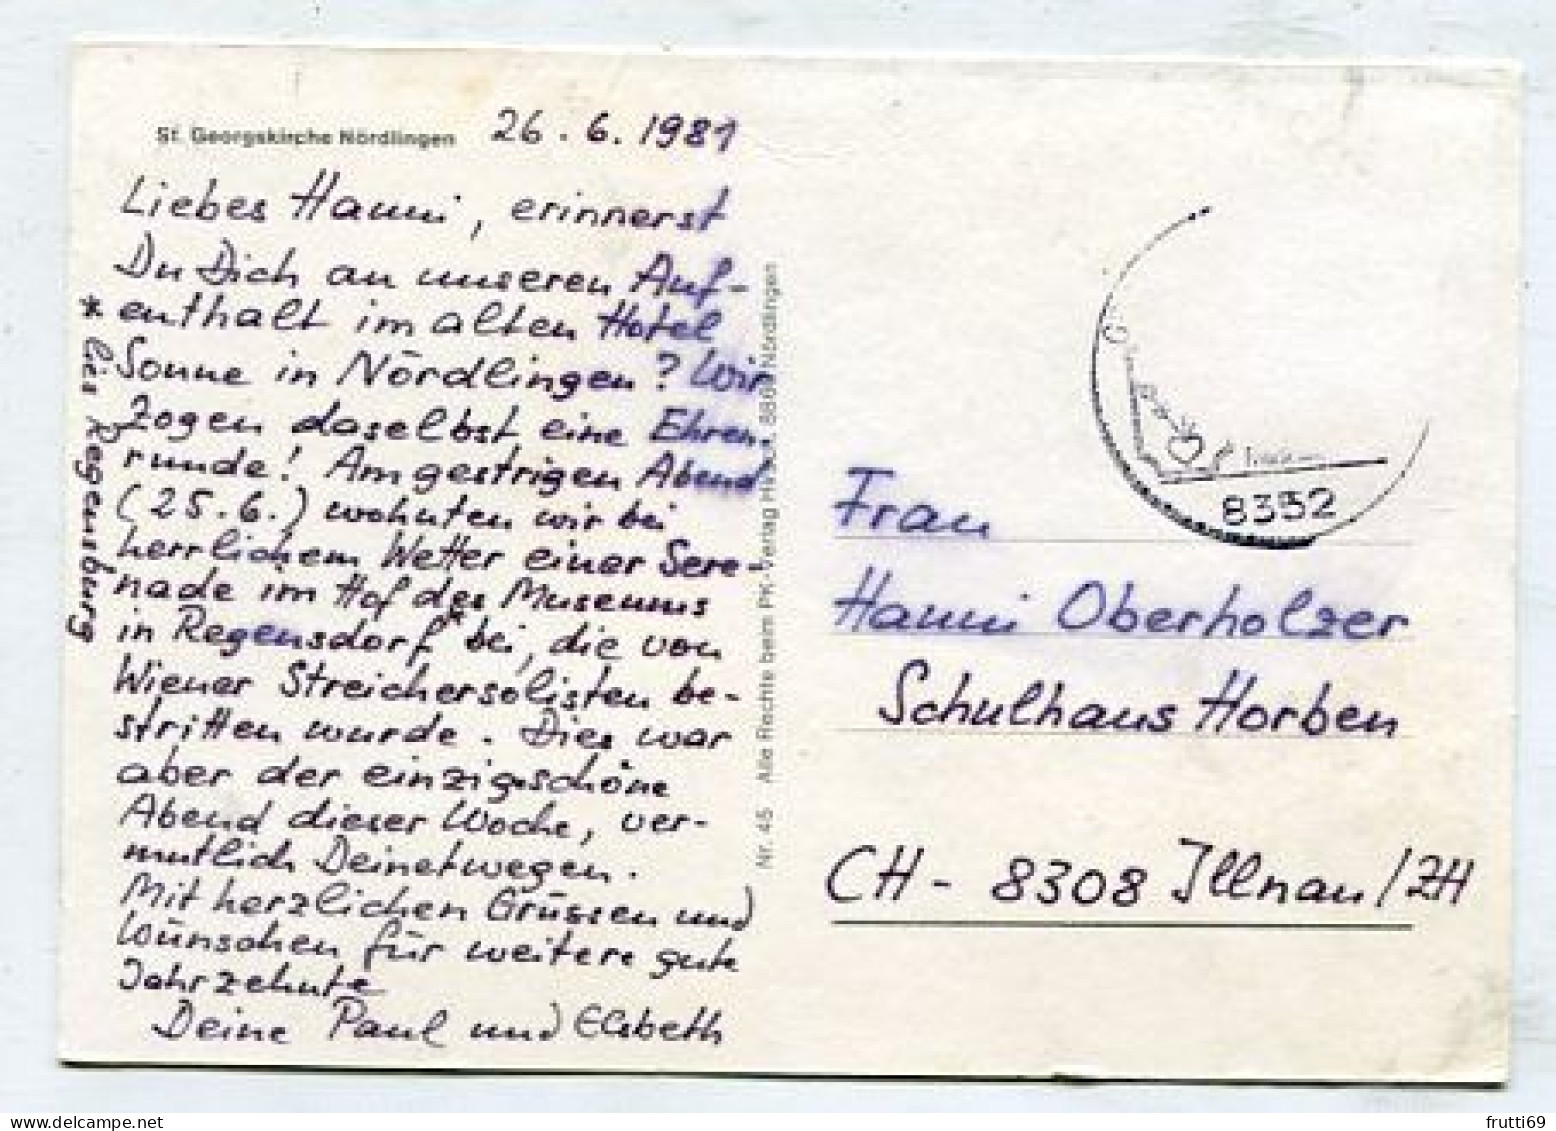 St. Georgskirche Nördlingen
26.6.1981
Liebes Hanni, erinnerst
Du Dich an unseren Auf-
enthalt im alten Hotel
Sonne in Nördlingen? Wir
zogen daselbst eine Ehren-
runde! Am gestrigen Abend
(25.6.) wohnten wir bei
herrlichem Wetter einer Sere-
nade im Hof des Museums
in Regensdorf* bei, die von
Wiener Streichersolisten be-
stritten wurde. Dies war
aber der einzigschöne
Abend dieser Woche, ver-
mutlich Deinetwegen.
Mit herzlichen Grüssen und
Wünschen für weitere gute
Jahrzehnte
Deine Paul und Elsbeth
* lies Regensburg
Nr. 45 Alle Rechte beim PK-Verlag Nördlingen
8352
Frau
Hanni Oberholzer
Schulhaus Horben
CH - 8308 Illnau/ZH
frutti69